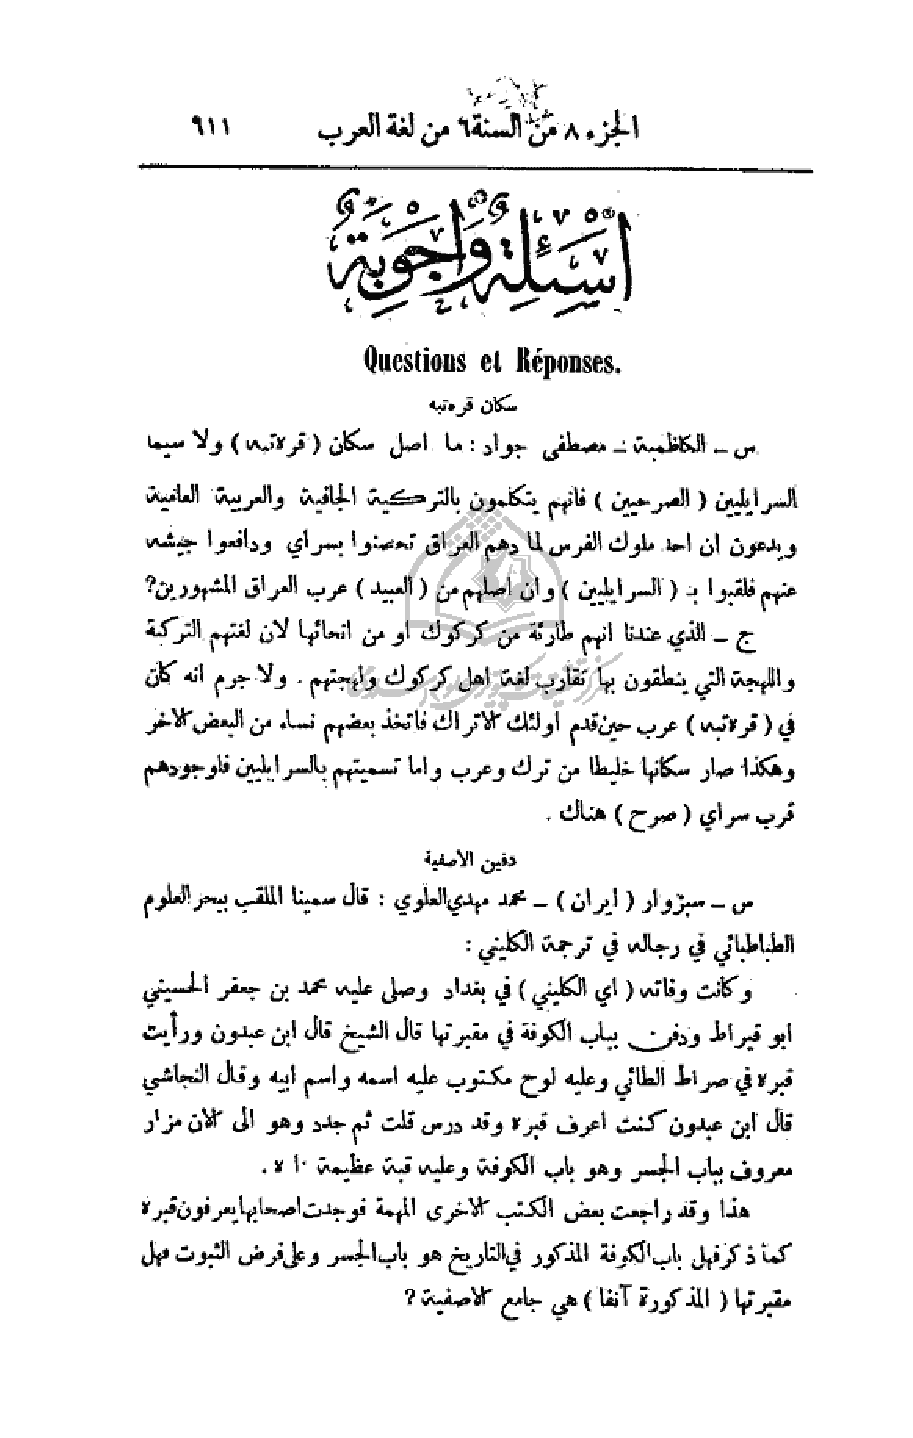 الجزء ٨ من السنة ٦ من لغة العرب ٦١١
أَسْئِلَةٌ وَأَجْوِبَةٌ
Questions et Réponses.
سكان قره‌تبه
س ـ الكاظمية ـ مصطفى جواد : ما اصل سكان ( قره‌تبه ) ولا سيما
السرايليين ( الصرحيين ) فانهم يتكلمون بالتركية الجافية والعربية العامية
ويدعون ان احد ملوك الفرس لما دهم العراق تحصنوا بسراي ودافعوا جيشه
عنهم فلقبوا بـ ( السرايليين ) وان اصلهم من ( العبيد ) عرب العراق المشهورين؟
ج ـ الذي عندنا انهم طارئة من كركوك او من انحائها لان لغتهم التركية
واللهجة التي ينطقون بها تقارب لغة اهل كركوك ولهجتهم . ولا جرم انه كان
في ( قره‌تبه ) عرب حين قدم اولئك الاتراك فاتخذ بعضهم نساء من البعض الاخر
وهكذا صار سكانها خليطا من ترك وعرب واما تسميتهم بالسرايليين فلوجودهم
قرب سراي ( صرح ) هناك .
دفين الآصفية
س ـ سبزوار ( ايران ) ـ محمد مهدي العلوي : قال سمينا الملقب ببحر العلوم
الطباطبائي في رجاله في ترجمة الكليني :
وكانت وفاته ( اي الكليني ) في بغداد وصلى عليه محمد بن جعفر الحسيني
ابو قيراط ودفن بباب الكوفة في مقبرتها قال الشيخ قال ابن عبدون ورأيت
قبره في صراط الطائي وعليه لوح مكتوب عليه اسمه واسم ابيه وقال النجاشي
قال ابن عبدون كنت اعرف قبره وقد درس قلت ثم جدد وهو الى الان مزار
معروف بباب الجسر وهو باب الكوفة وعليه قبة عظيمة ١٠ه .
هذا وقد راجعت بعض الكتب الاخرى المهمة فوجدت اصحابها يعرفون قبره
كما ذكر فهل باب الكوفة المذكور في التاريخ هو باب الجسر وعلى فرض الثبوت فهل
مقبرتها ( المذكورة آنفا ) هي جامع الاصفية ؟